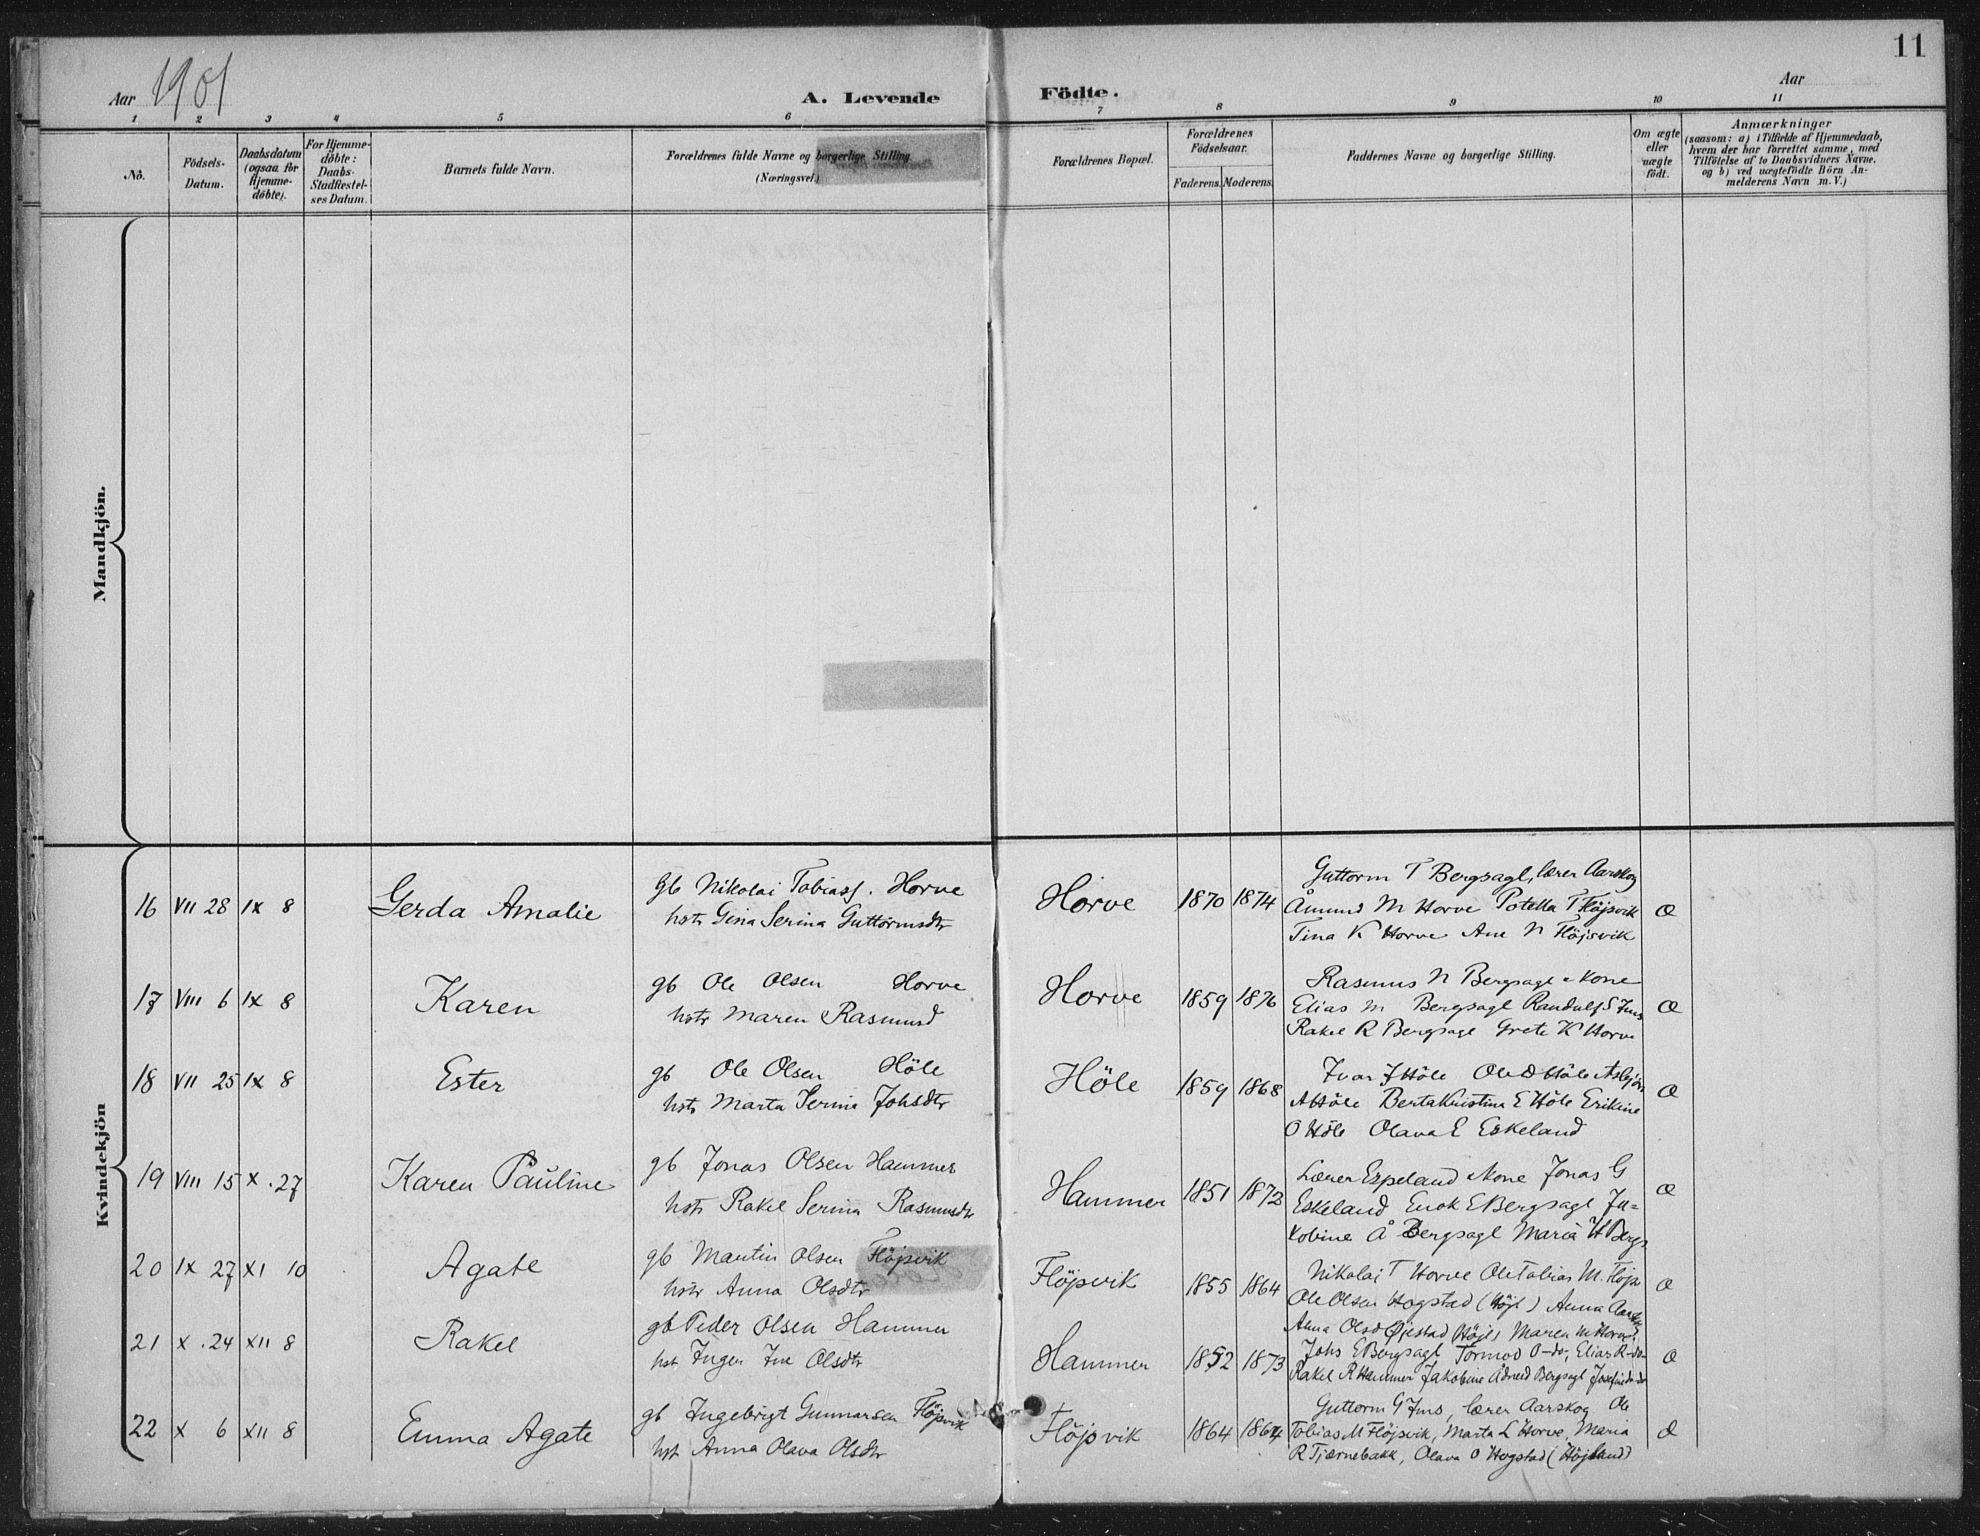 11
Aar 1901 A. Levende Födte. Aar
1 2 3 4 5 6 7 8 9 10 11
No.
Födsels-Datum.
Daabsdatum (ogsaa for Hjemmedöbte).
For Hjemmedöbte: Daabs-Stadfæstelses Datum.
Barnets fulde Navn.
Forældrenes fulde Navne og borgerlige Stilling
(Næringsvei)
Forældrenes Bopæl.
Forældrenes Födselsaar.
Faderens. Moderens.
Faddernes Navne og borgerlige Stilling.
Om ægte eller uægte født.
Anmærkninger
(saasom: a) i Tilfælde af Hjemmedaab,
hvem der har forrettet samme, med
Tilföielse af to Daabsvidners Navne.
og b) ved uægtefödte Börn An-
melderens Navn m. V.)
Mandkjön.
Kvindekjön
16 VII 28 IX 8 Gerda Amalie gb Nikolai Tobiass. Horve Horve 1870 1874 Guttorm T Bergsagl, lærer Aarskog
hstr Gina Serina Guttormsdtr Åmund M Horve Potella T Flöjsvik Æ
Tina K Horve Ane N Flöjsvik
17 VIII 6 IX 8 Karen gb Ole Olsen Horve Horve 1859 1876 Rasmus N Bergsagl & Kone
hstr Maren Rasmusd Elias M Bergsagl Randulf S Fms Æ
Rakel R Bergsagl Grete K Horve
18 VII 25 IX 8 Ester gb Ole Olsen Höle Höle 1859 1868 Ivar J Höle Ole D Höle Asbjörn
hstr Marta Serina Johsdtr A Höle Berta Kristina E Höle Erikine Æ
O Höle Olava E Eskeland
19 VIII 15 X . 27 Karen Pauline gb Jonas Olsen Hammer Hammer 1851 1872 Lærer Espeland & Kone Jonas G
hstr Rakel Serina Rasmusdtr Eskeland Enok E Bergsagl Ja= Æ
kobine Å Bergsagl Maria H Bergs
20 IX 27 XI 10 Agate gb Martin Olsen Flöjsvik Flöjsvik 1855 1864 Nikolai T Horve Ole Tobias M. Flöjs
hstr Anna Olsdtr Ole Olsen Hogstad (Höjl) Anna Aarsk Æ
Anna Olsd Öjestad Höjl, Maren M Horve
21 X . 24 XII 8 Rakel gb Peder Olsen Hammer Hammer 1852 1873 Johs E Bergsagl Tormod O -do-, Elias R -do-
hst Inger Olsdtr Rakel R Hammer Jakobine Bergsagl Æ
22 X 6 XII 8 Emma Agate gb Ingebrigt Gunnarsen Flöjsvik Flöjsvik 1864 1864 Guttorm G Fms, lærer Aarskog Ole
hst Anna Olava Olsdtr Tobias M Flöjsvik, Marta L Horve, Maria Æ
R Tjærnebakk, Olava O Hogstad (Höjland)